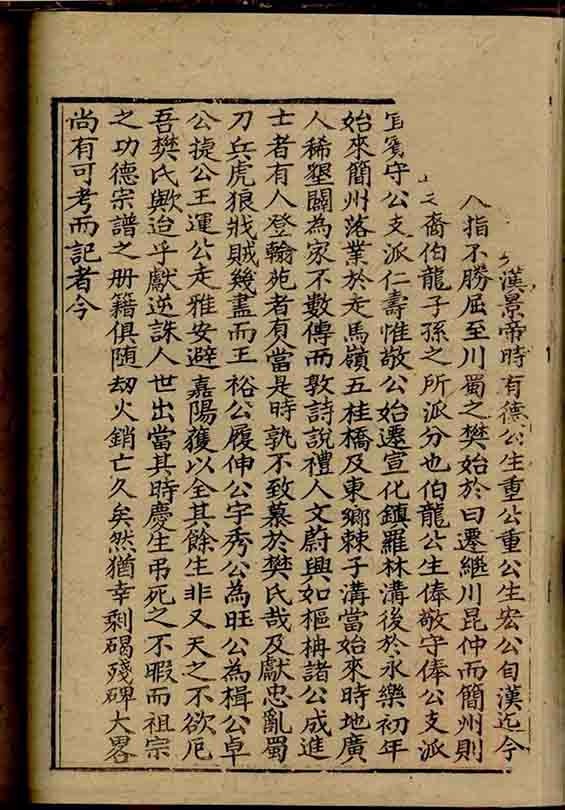 漢景帝時有德公生重公重公生宏公自漢迄今
指不勝屈至川蜀之樊始於曰遷繼川昆仲而簡州則
裔伯龍子孫之所派分也伯龍公生俸敬守俸公支派
守公支派仁壽惟敬公始遷宣化鎮羅林溝後於永樂初年
始來簡州落業於走馬嶺五桂橋及東鄉棘子溝當始來時地廣
人稀墾闢為家不數傳而敦詩說禮人文蔚興如樞冉諸公成進
士者有人登翰苑者有人當是時孰不致慕於樊氏哉及獻忠亂蜀
刀兵虎狼戕賊幾盡而王裕公履伸公字秀公為旺公為楫公卓
公捷公王運公走雅安避嘉陽獲以全其餘生非又天之不欲厄
吾樊氏歟迨乎獻逆誅人世出當其時慶生弔死之不暇而祖宗
之功德宗譜之册籍俱随刼火銷亡久矣然猶幸剩碣殘碑大畧
尚有可考而記者今